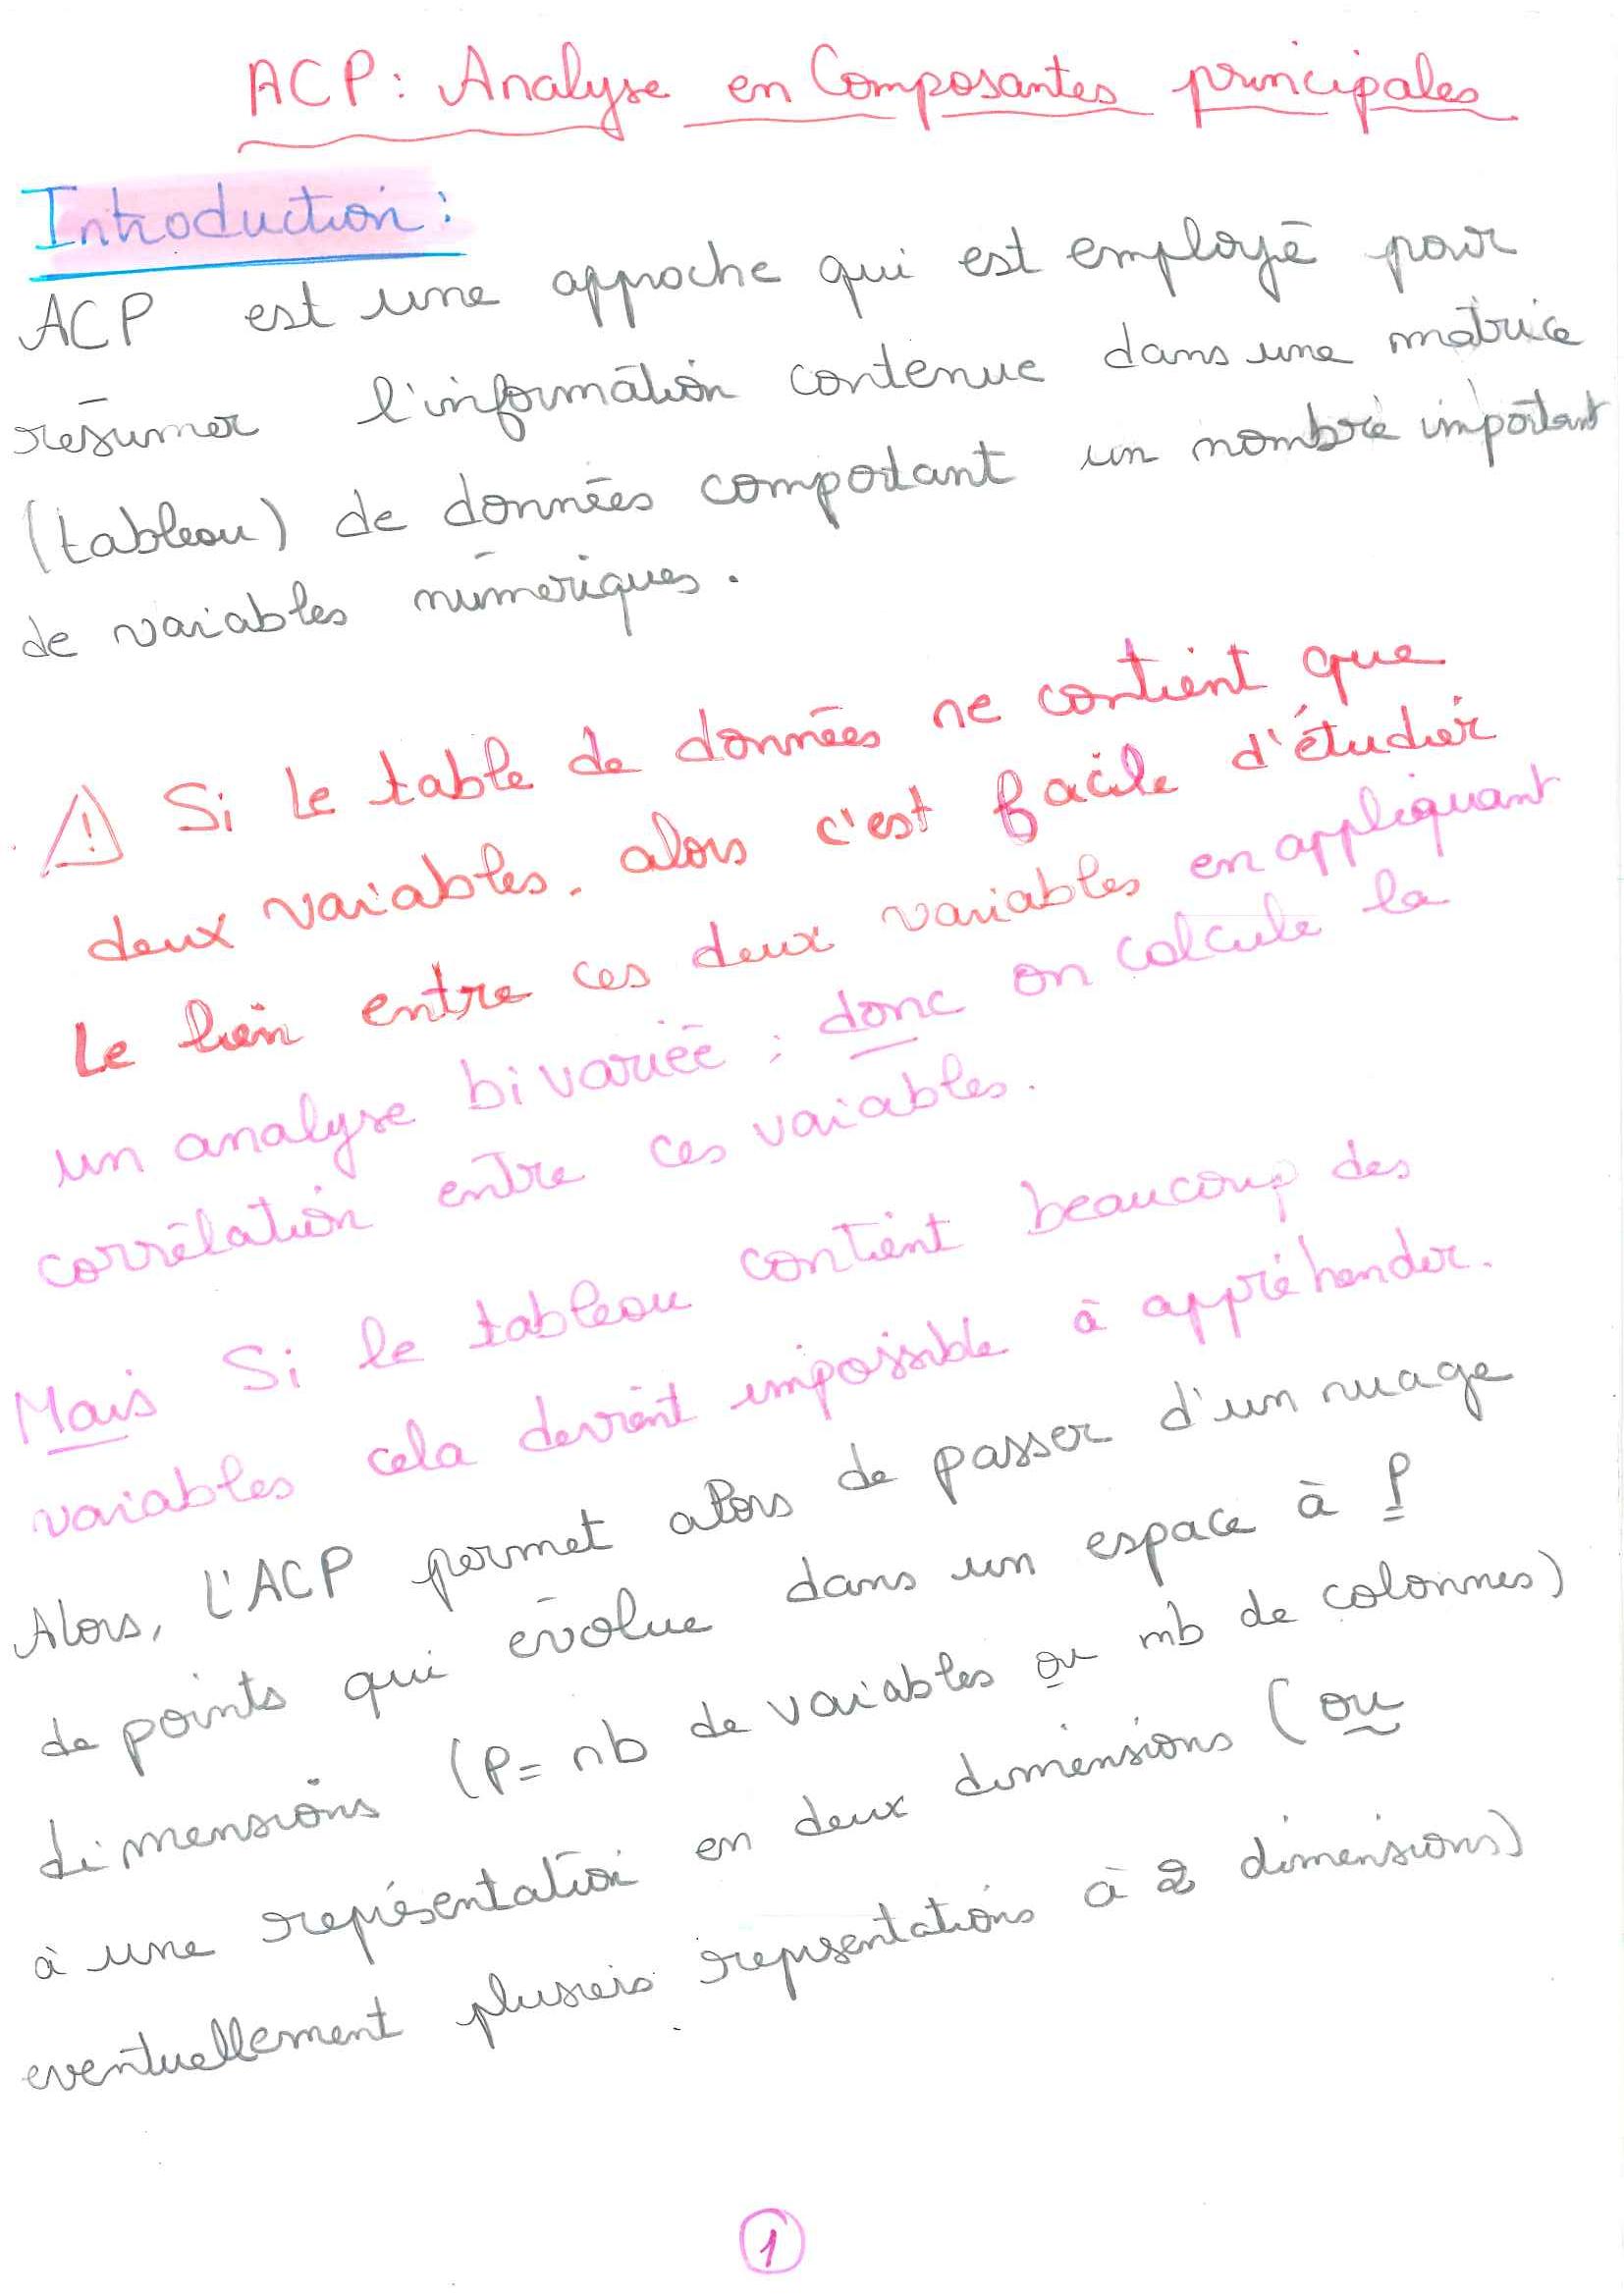 ACP: Analyse en Composantes principales
Introduction:
ACP est une approche qui est employé pour
résumer l'information contenue dans une matrice
(tableau) de données comportant un nombre important
de variables numériques.
⚠ Si le table de données ne contient que
deux variables. alors c'est facile d'étudier
Le lien entre ces deux variables en appliquant
un analyse bivariée ; donc on calcule la
corrélation entre ces variables.
Mais Si le tableau contient beaucoup des
variables cela devient impossible à appréhender.
Alors, L'ACP permet alors de passer d'un nuage
de points qui évolue dans un espace à P
dimensions (P= nb de variables ou nb de colonnes)
à une représentation en deux dimensions (ou
eventuellement plusieis representations à 2 dimensions)
1